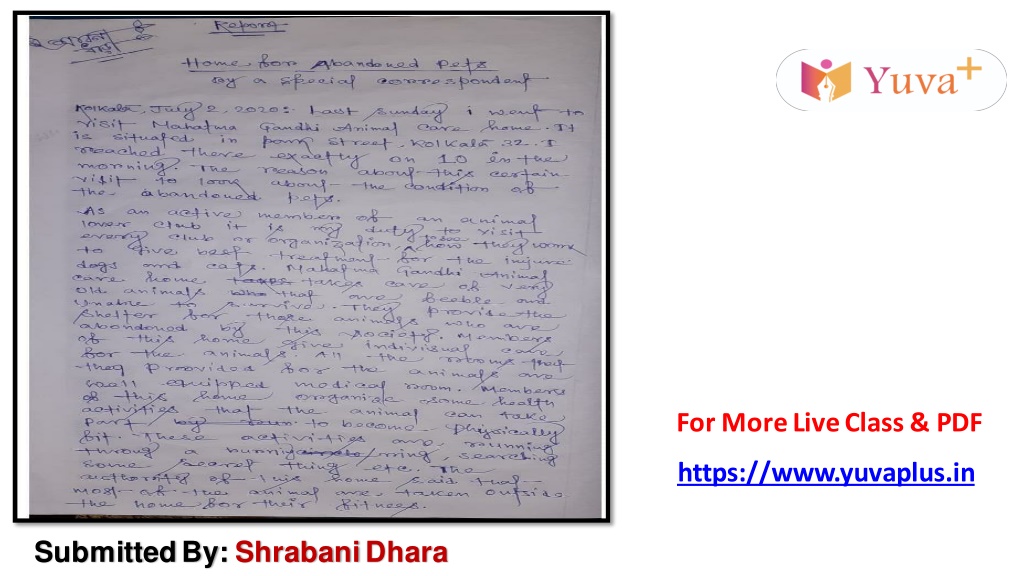 Report
Home for Abandoned Pets
by a special correspondent
Kolkata, July 2, 2020: Last sunday i went to
visit Mahatma Gandhi Animal Care home. It
is situated in park street, Kolkata 32. I
reached there exactly on 10 in the
morning. The reason about this certain
visit to look about the condition of
the abandoned pets.
As an active member of an animal
lover club it is my duty to visit
every club or organization, to see how they work
to give best treatment for the injure
dogs and cats. Mahatma Gandhi Animal
care home takes care of very
old animals that are feeble and
unable to survive. They provide the
shelter for those animals who are
abandoned by this society. Members
of this home give individual care
for the animals. All the rooms that
they provided for the animals are
well equipped medical room. Members
of this home organize some health
activities that the animal can take
part to become physically
fit. These activities are, running
throug a ring, searching
some secret thing etc. The
authority of this home said that
most of the animal are taken outside
the home for their fitness.
Yuva+
For More Live Class & PDF
https://www.yuvaplus.in
Submitted By: Shrabani Dhara